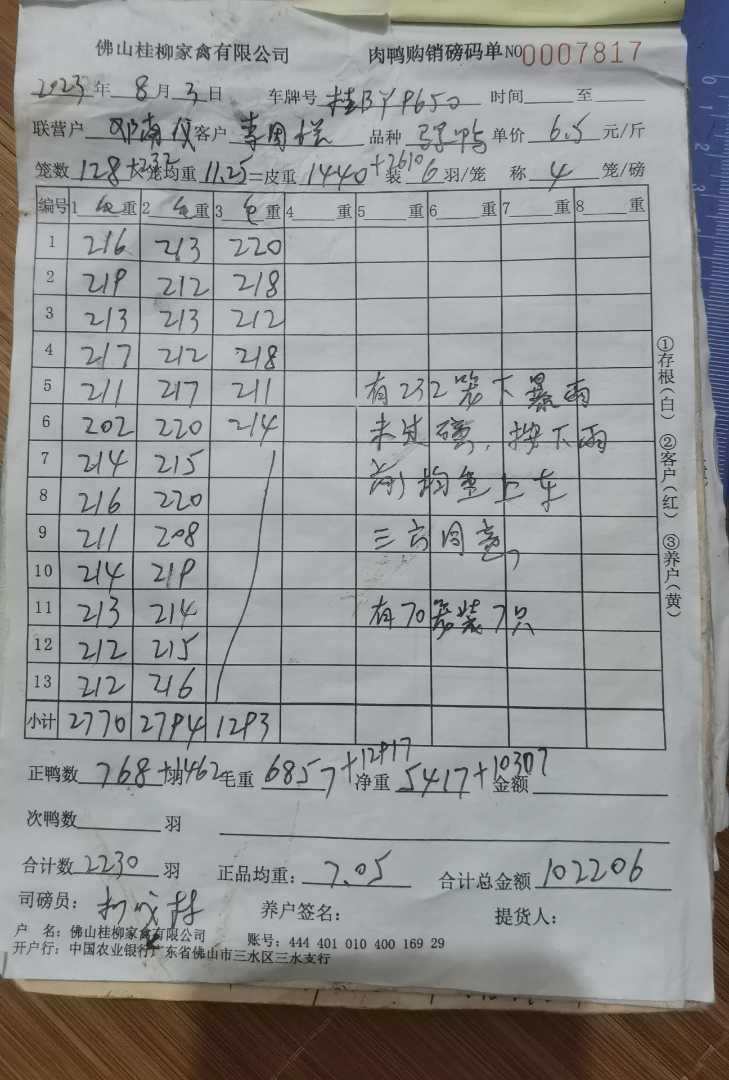 佛山桂柳家禽有限公司 肉鸭购销磅码单 NO 0007817
2023年 8月 3日 车牌号 时间 至
联营户 客户 品种 单价 6.5 元/斤
笼数 128+232 笼均重 11.25 =皮重 1440+2610 装 6 羽/笼 称 4 笼/磅
编号 1 毛重 2 毛重 3 毛重 4 重 5 重 6 重 7 重 8 重
1 216 213 220
2 219 212 218
3 213 213 212
4 217 212 218
5 211 217 211
6 202 220 214
7 214 215
8 216 220
9 211 208
10 214 219
11 213 214
12 212 215
13 212 216
小计 2770 2794 1293
有232笼下暴雨
未过磅,按下雨
前均重上车
三方同意,
有70笼装7只
①存根(白) ②客户(红) ③养户(黄)
正鸭数 768+1462 羽 毛重 6857+12917 净重 5417+10307 金额
次鸭数 羽
合计数 2230 羽 正品均重: 7.05 合计总金额 102206
司磅员: 养户签名: 提货人:
户 名: 佛山桂柳家禽有限公司 账号: 444 401 010 400 169 29
开户行: 中国农业银行广东省佛山市三水区三水支行